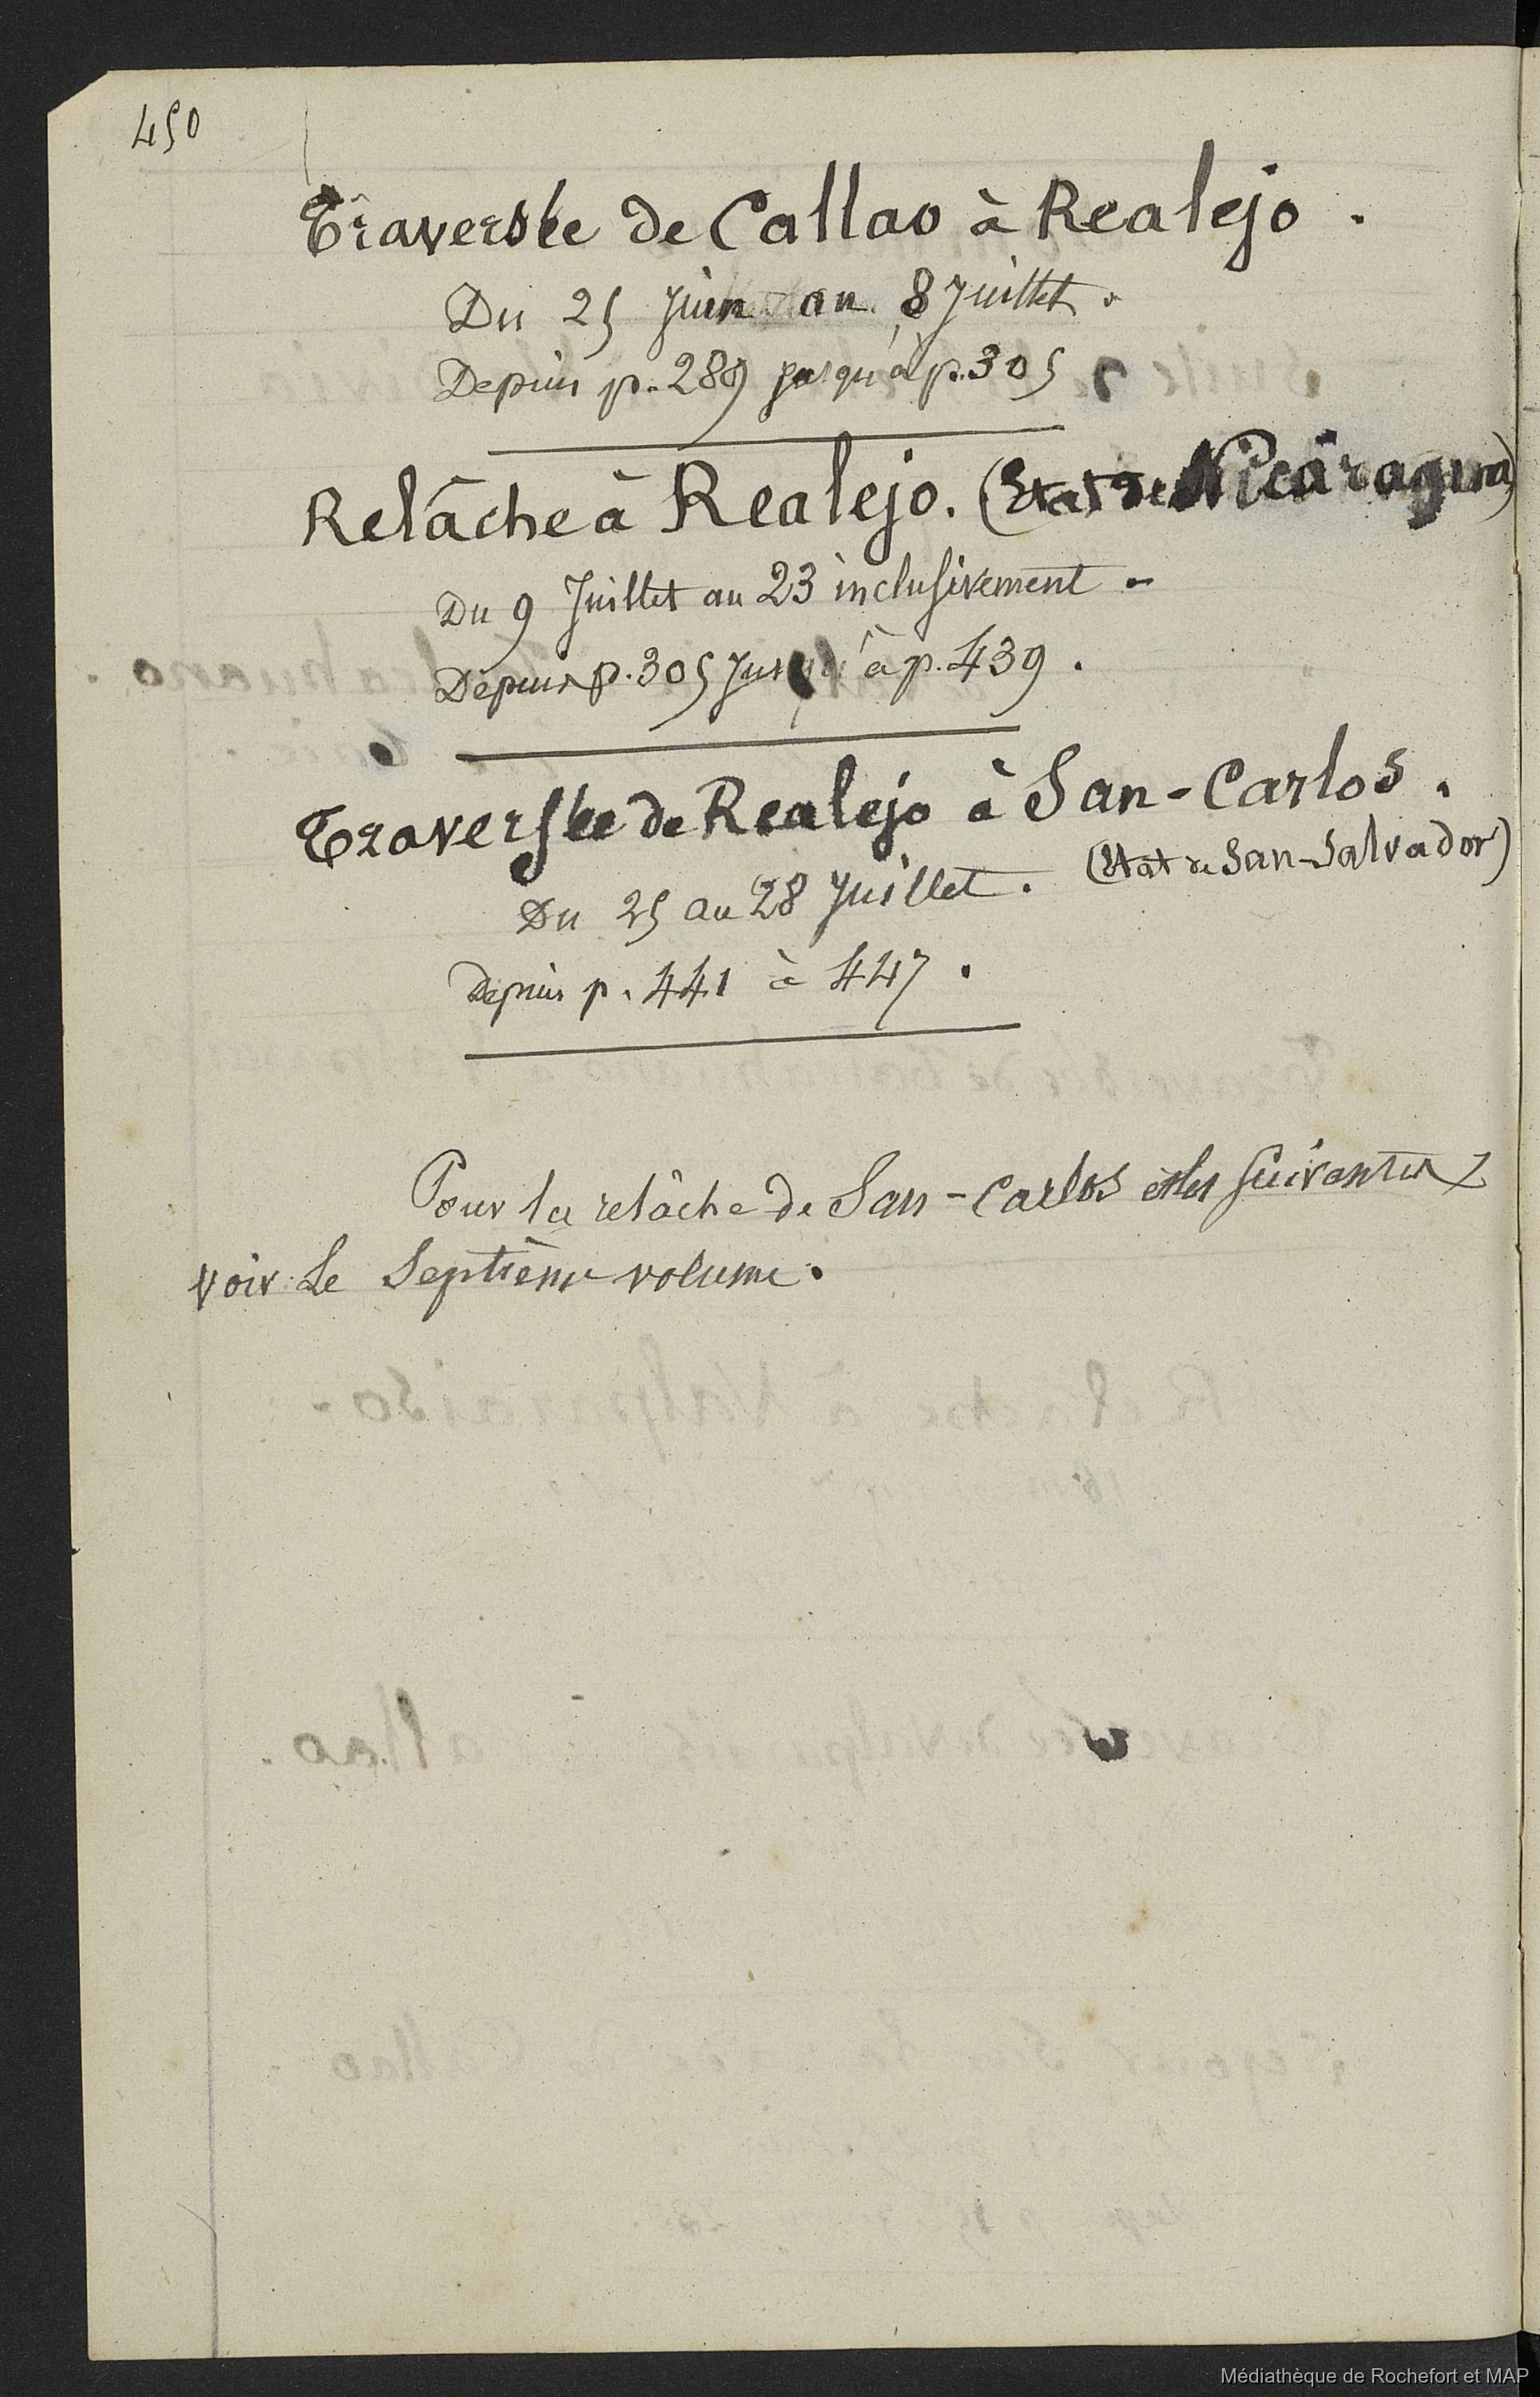 450
Traversée de Callao à Realejo.
Du 25 Juin au 8 Juillet.
Depuis p. 289 jusqu'à p. 305
Relâche à Realejo. (Etat de Nicaragua)
Du 9 Juillet au 23 inclusivement.
Depuis p. 305 jusqu'à p. 439.
Traversée de Realejo à San-Carlos.
(Etat de San-Salvador)
Du 25 au 28 Juillet.
Depuis p. 441 à 447.
Pour la relâche de San-Carlos et les suivantes
voir le Septième volume.
Médiathèque de Rochefort et MAP